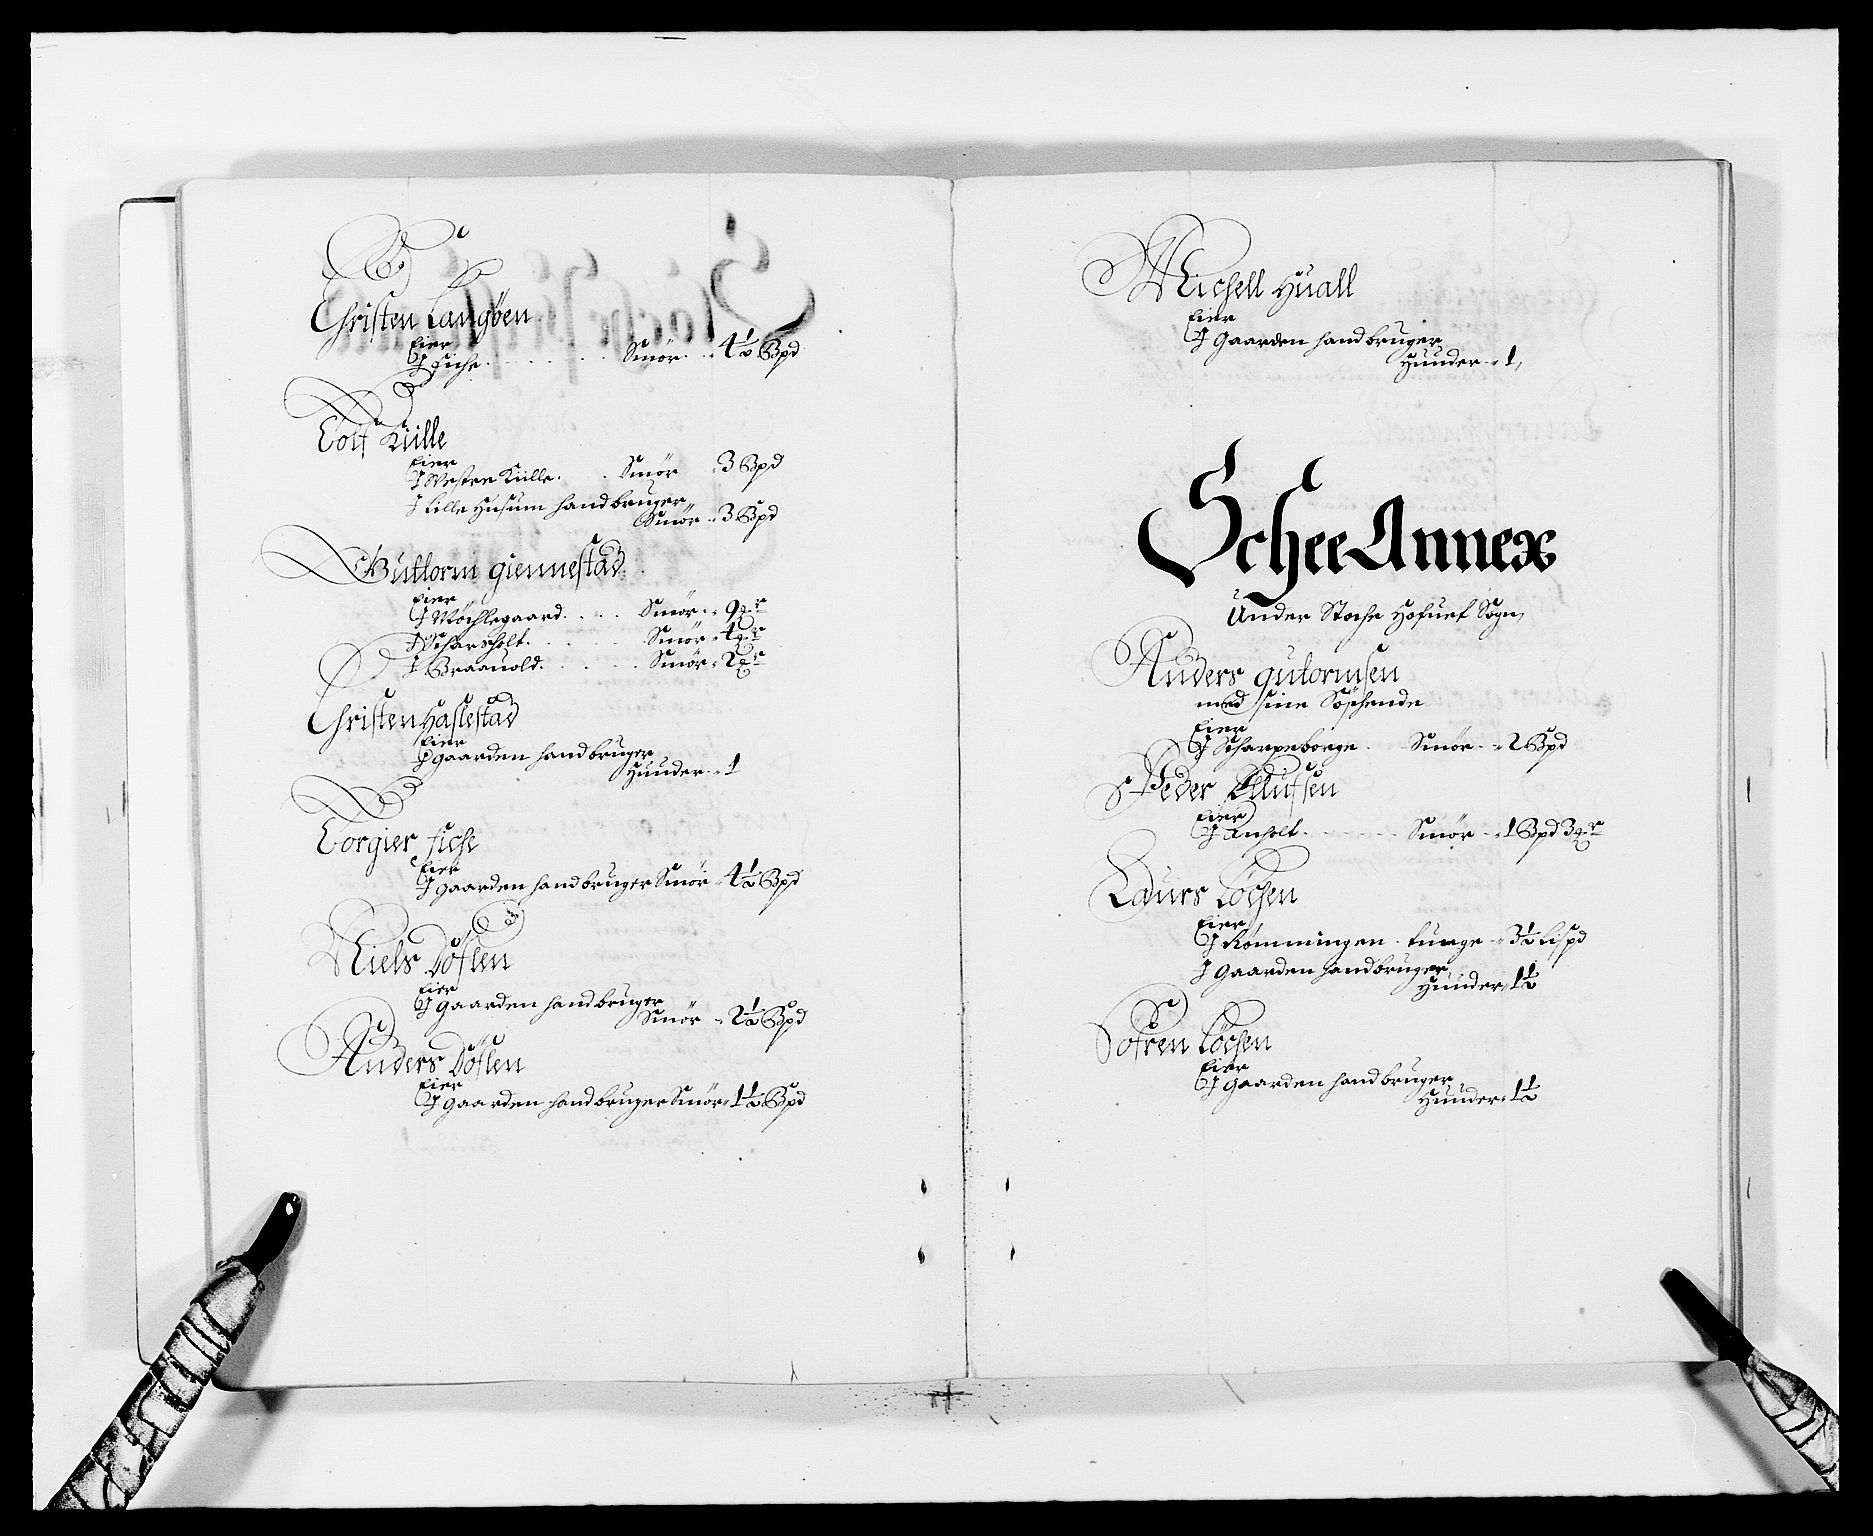 Christen Langöen
Eier
J Fiche . . . . . . . Smör . . 4½ Bpd
Tolf Kiille
Eier
J Westre Kiille . . Smör . 3 Bpd
J Lille Husum hand bruger
Smör . 3 Bpd
Guttorm giennestad
Eier
J Möchlegaard . . . . Smör . 9 qr
J Scharsholt . . . . . Smör . 4 qr
J Braauold . . . . . Smör . 2 qr
Christen Haslestad
Eier
J gaarden hand bruger
Hunder . 1
Torgier Fiche
Eier
J gaarden hand bruger Smör . 4½ Bpd
Niels Döflen
Eier
J gaarden hand bruger
Smör . 2½ Bpd
Anders Döflen
Eier
J gaarden hand bruger Smör . 1½ Bpd
Michell Huall
Eier
J gaarden hand bruger
Hunder . 1,
Schee Annex
Under Stoche Hofuet Sogn,
Anders gutormsen
med sine Söschende
Eier
J Scharpeborge . Smör . . 2 Bpd
Peder Ellufsen
Eier
J Anholt . . . . . . Smör . . 1 Bpd 3 qr
Laurs Löchen
Eier
J Römmingen . tunge . 3½ Lispd
J gaarden hand bruger
Hunder . 1½
Sofren Löchen
Eier
J gaarden hand bruger
Hunder . 1½